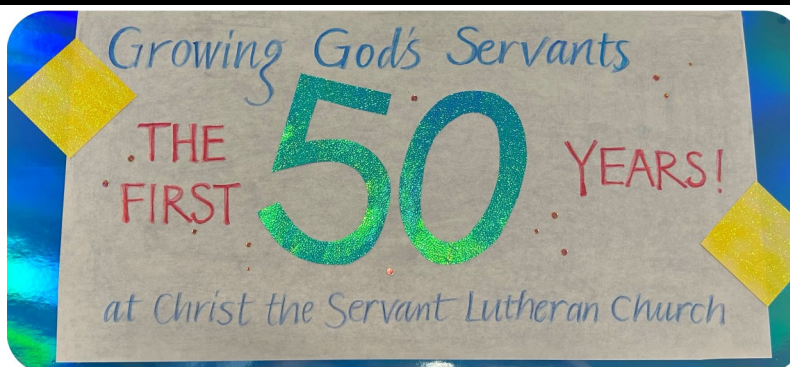 Growing God's Servants
THE FIRST 50 YEARS!
at Christ the Servant Lutheran Church